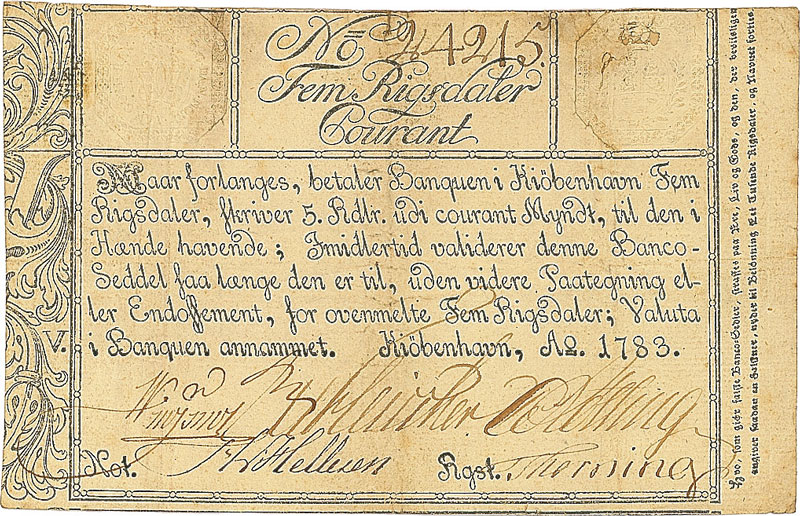 No 24215.
Fem Rigsdaler
Courant
Naar forlanges, betaler Banquen i Kiöbenhavn Fem
Rigsdaler, skriver 5. Rdlr. udi courant Myndt, til den i
Hænde havende; Imidlertid validerer denne Banco-
Seddel saa længe den er til, uden videre Paategning el-
ler Endossement, for ovenmelte Fem Rigsdaler; Valuta
i Banquen annammet. Kiöbenhavn, Ao. 1783.
V.
Not. Rgst. Thorning
Hvo, som giör falske Banco-Sedler, straffes paa Ære, Liv og Gods, og den, der beviisligen
angiver saadan en Falskner, nyder til Belönning Eet Tusende Rigsdaler, og Navnet forties.